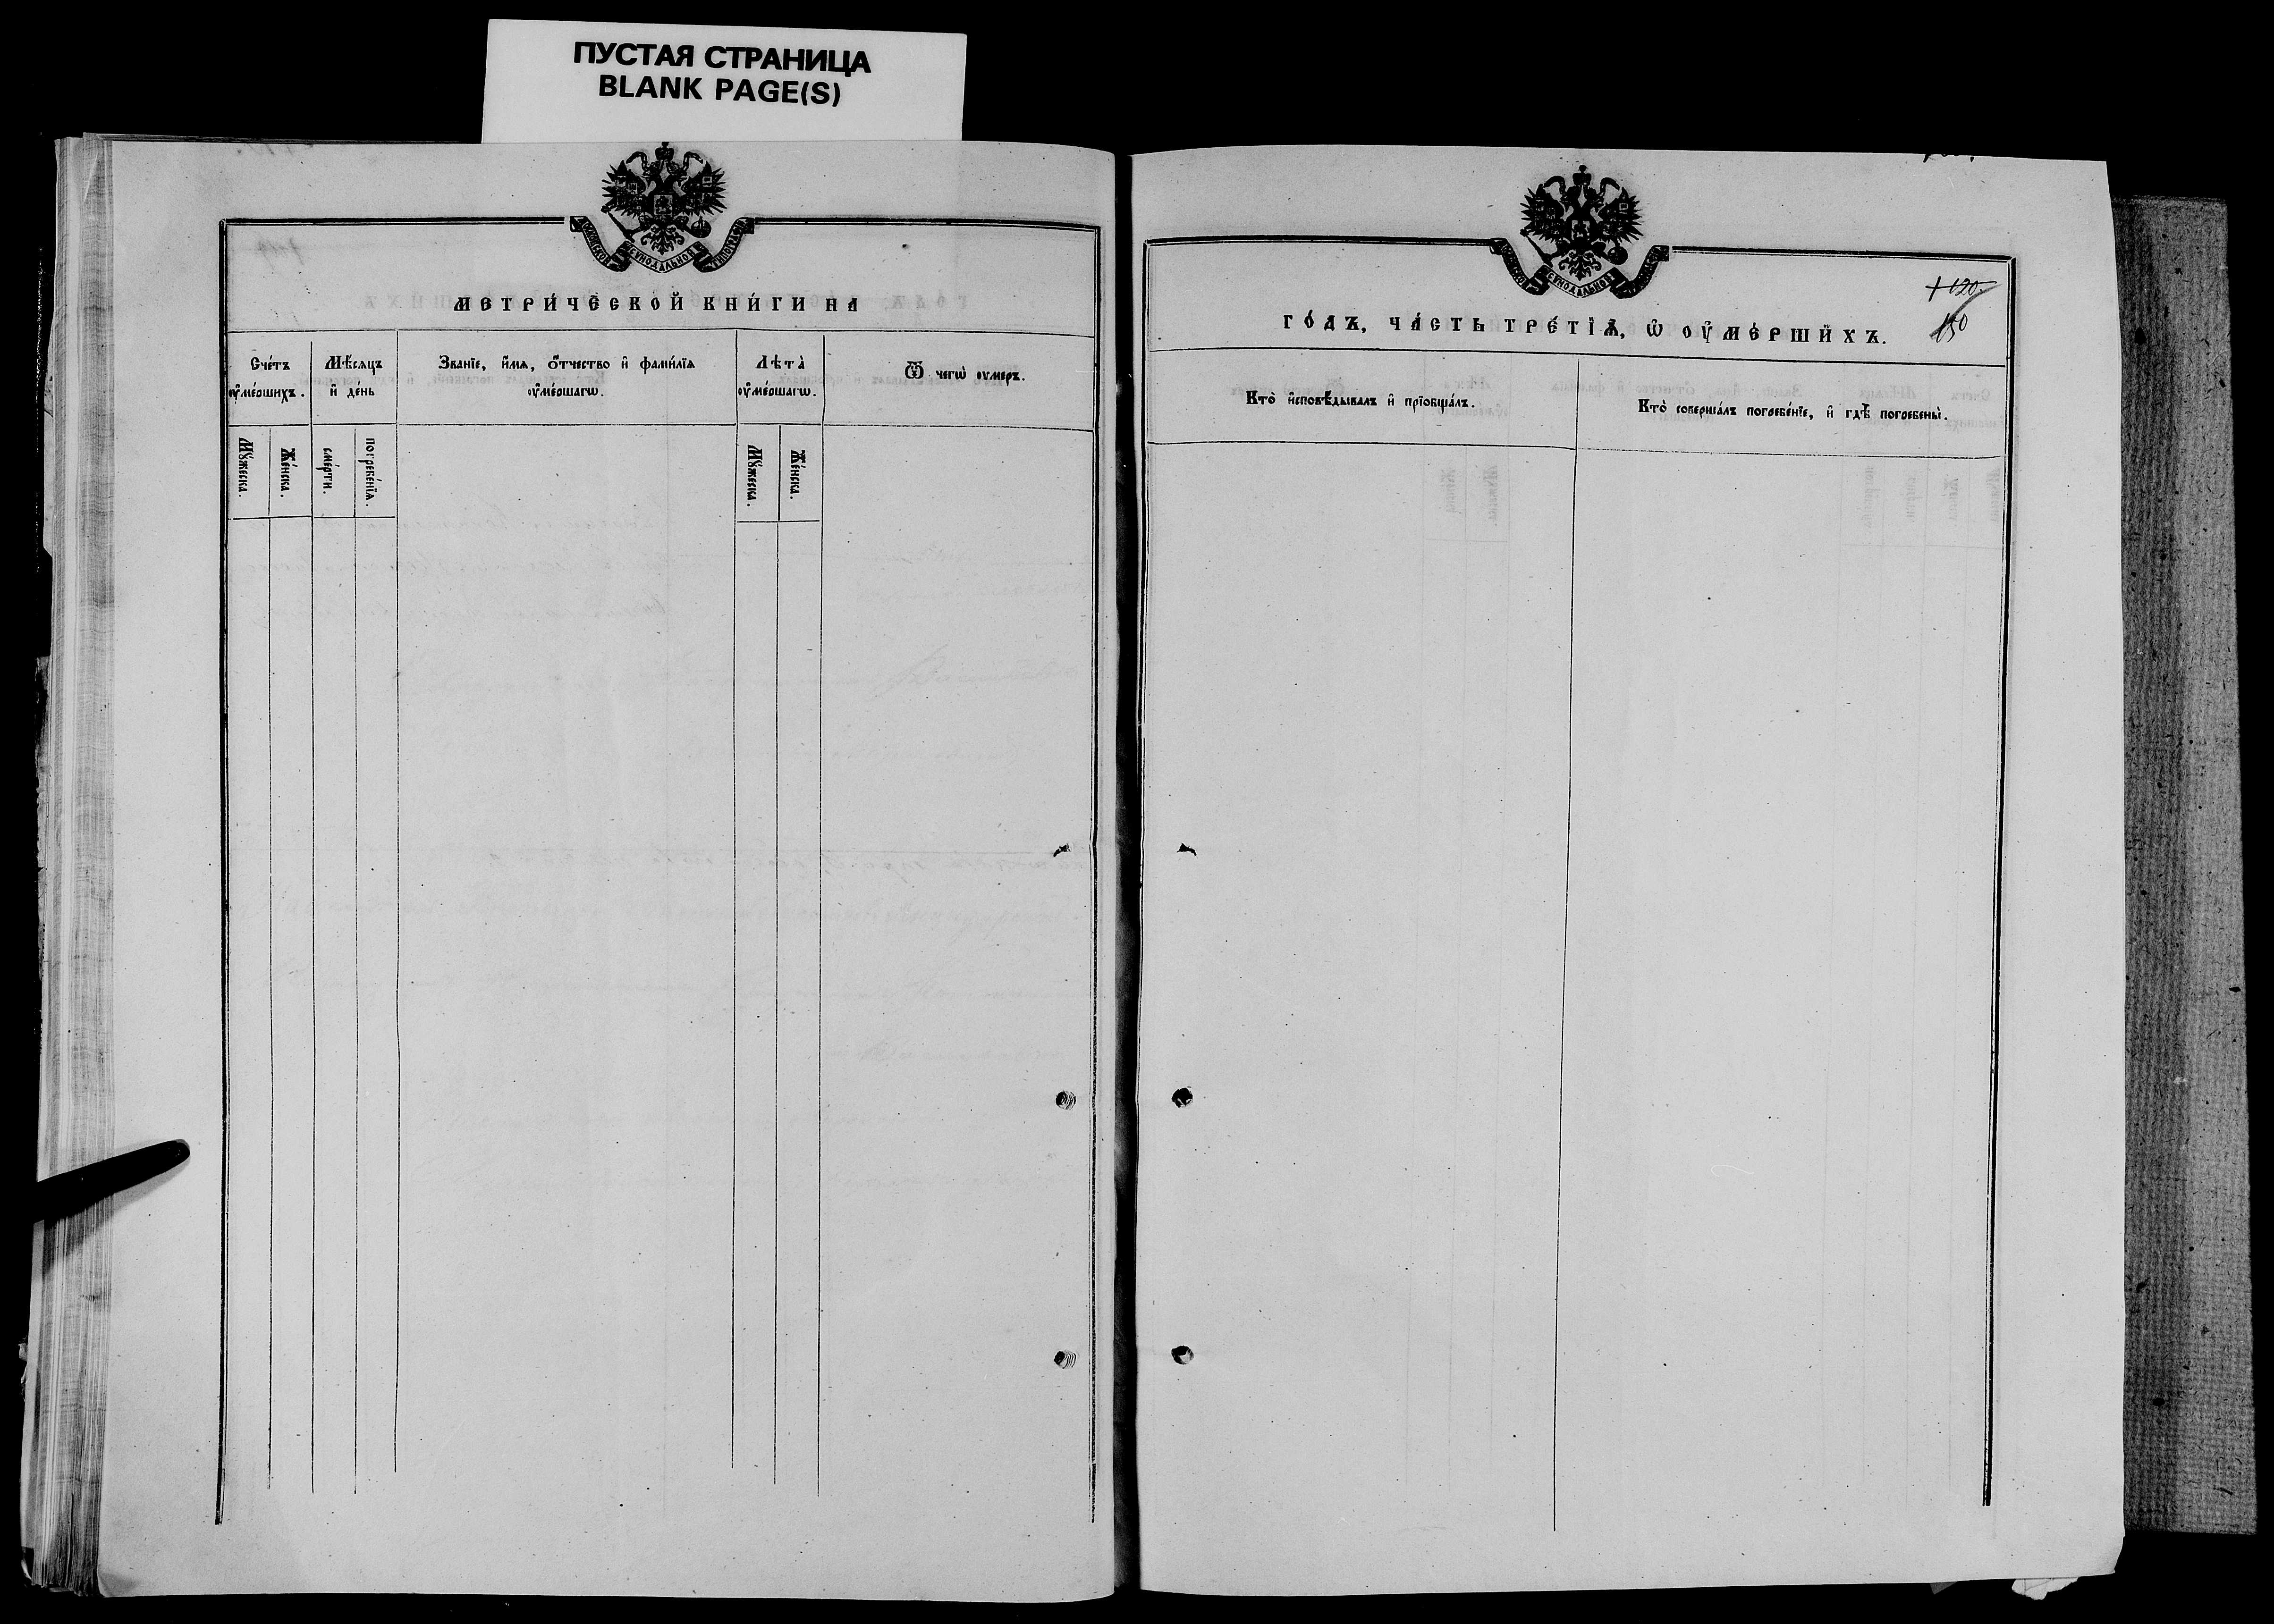 ПУСТАЯ СТРАНИЦА
BLANK PAGE(S)
МЕТРИ́ЧЕСКОЙ КНИ́ГИ НА
Сче́тъ ᲂу҆ме́ршихъ.
Мѣ́сѧцъ и҆ де́нь
Зва́нїе, и҆́мѧ, ѻ҆́тчество и҆ фами́лїѧ ᲂу҆ме́ршагѡ.
Лѣта̀ ᲂу҆ме́ршагѡ.
Ѿ чегѡ̀ ᲂумеръ.
Мꙋ́жеска.
Же́нска.
сме́рти.
погребе́нїѧ.
Мꙋ́жеска.
Же́нска.
120
150
ГО́ДЪ, ЧА́СТЬ ТРЕ́ТЇѦ, Ѡ҆ ОУ҆МЕ́РШИХЪ.
Кто̀ и҆сповѣ́дывалъ и҆ прїобща́лъ.
Кто̀ соверша́лъ погребе́нїе, и҆ гдѣ̀ погребены̀.